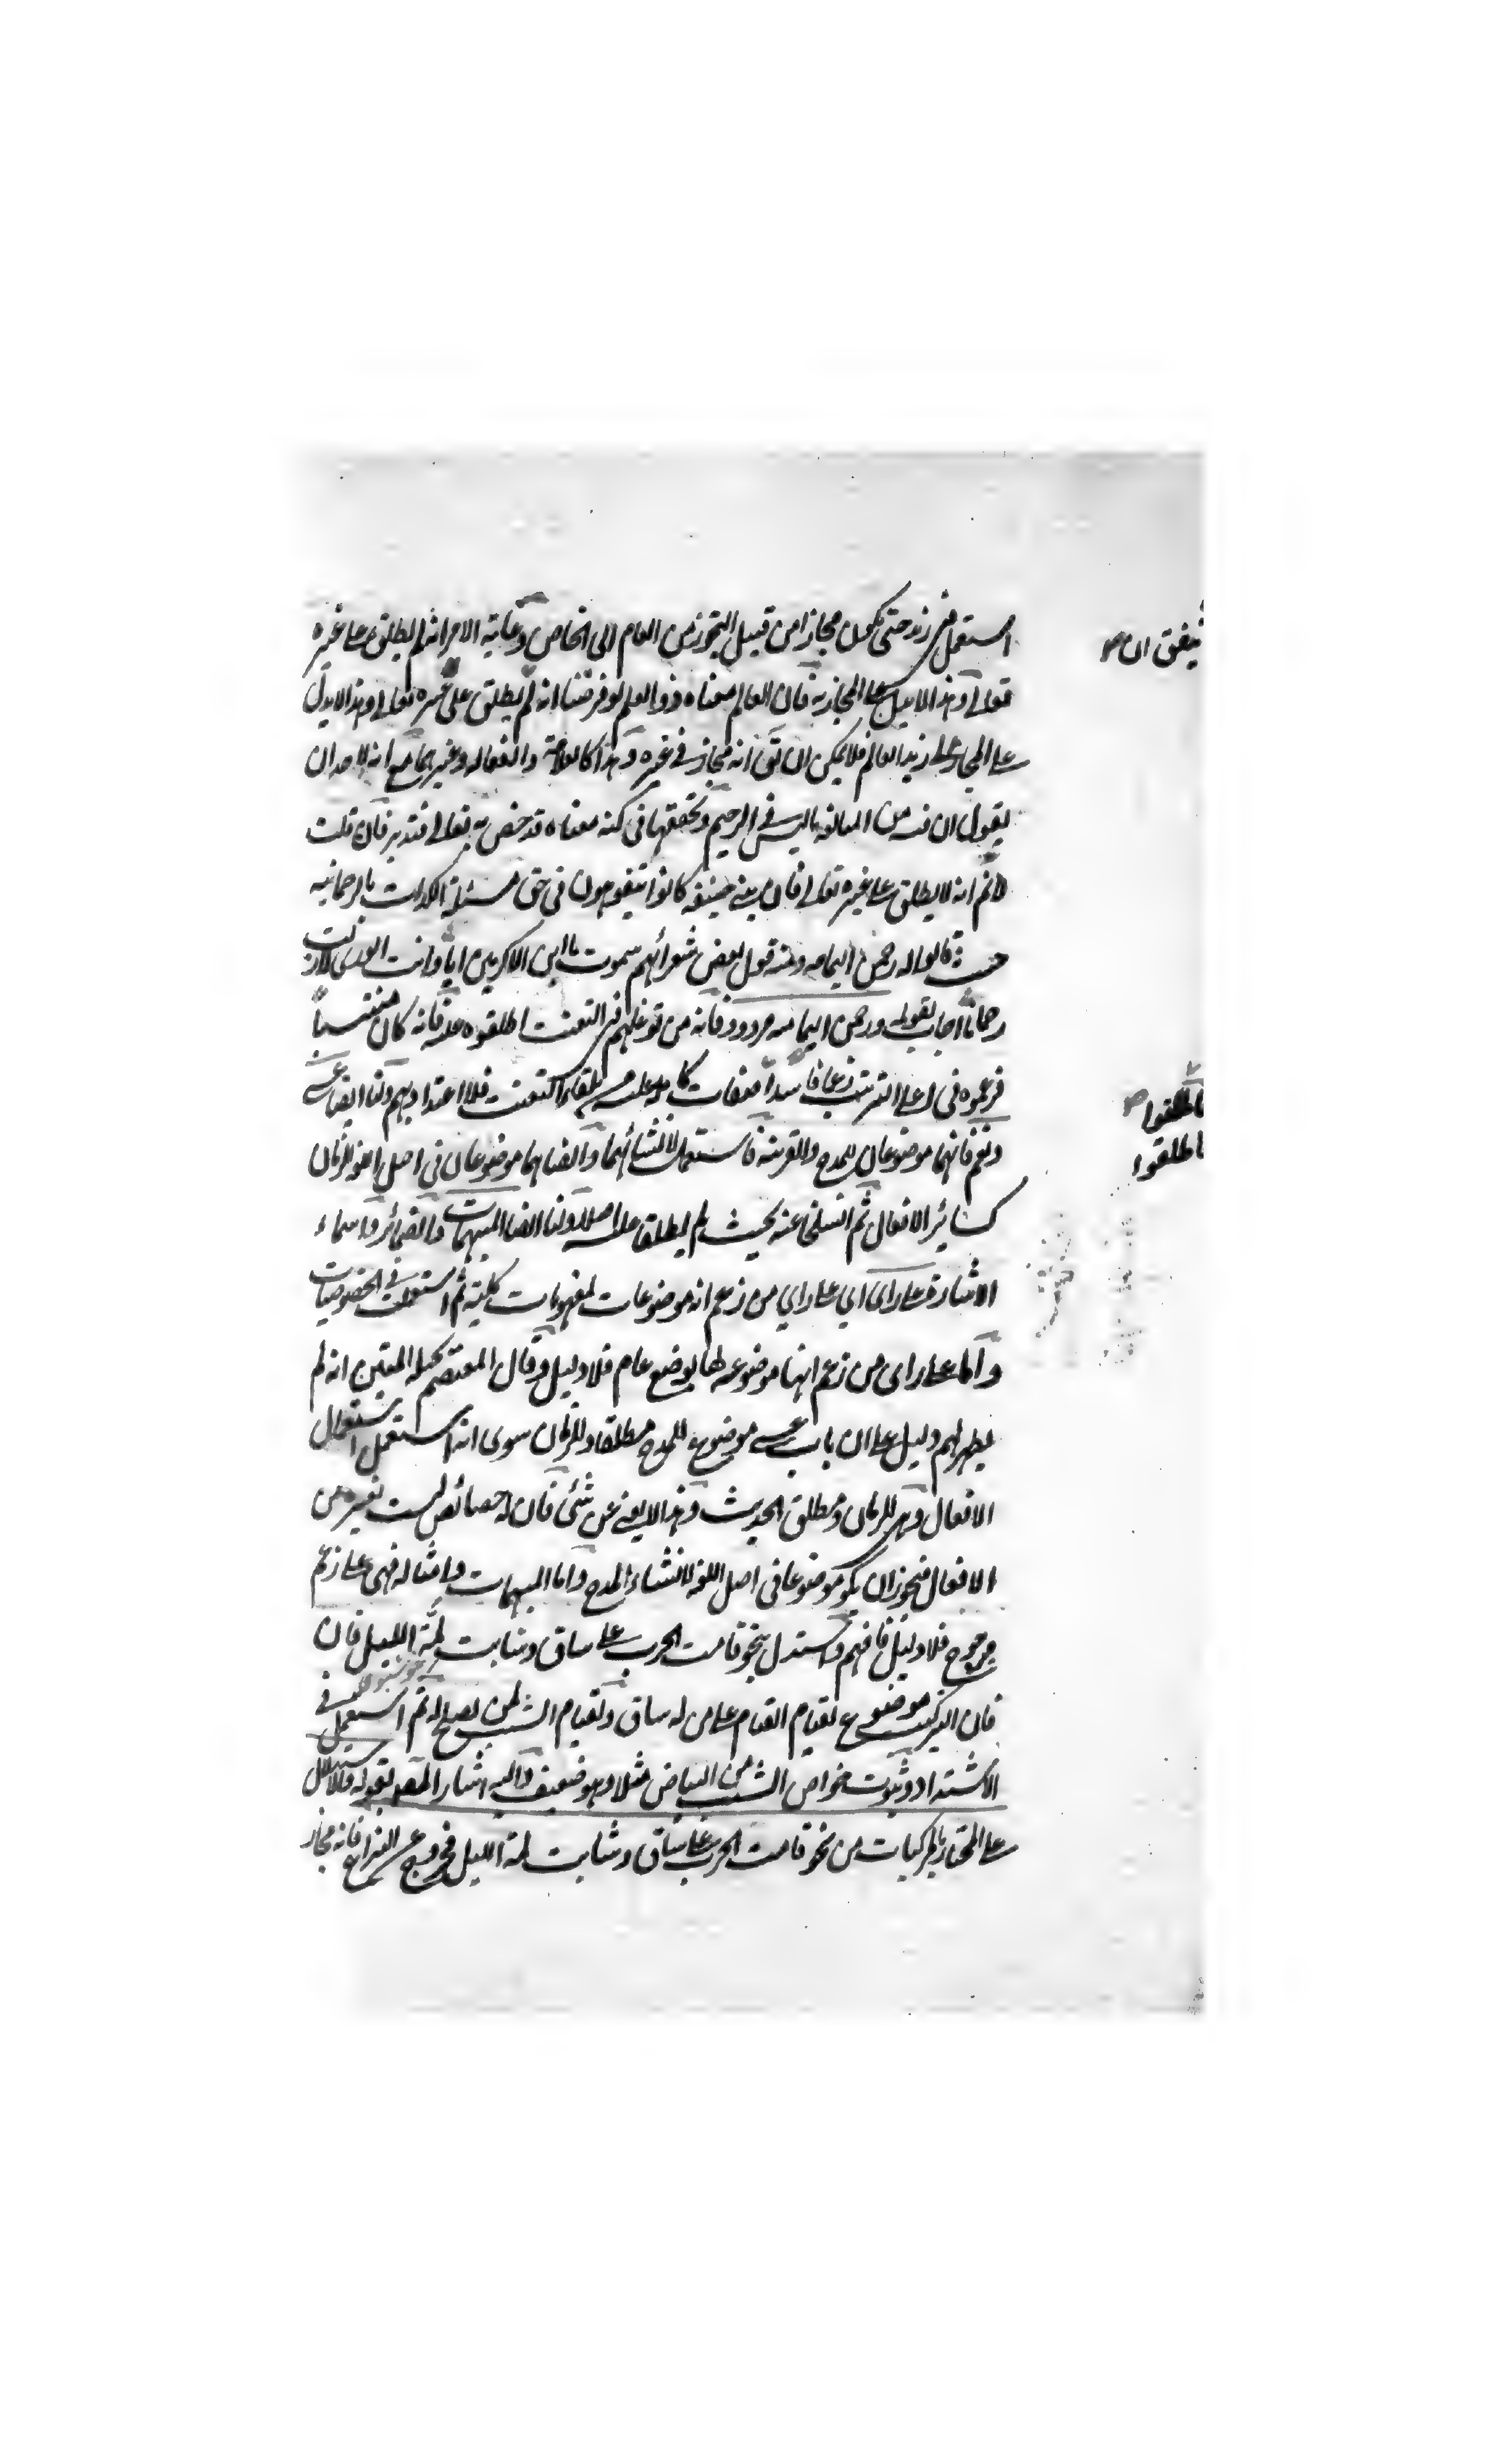 استعمل في زيد حتى يكون مجازا من قبيل التجوز من العام الى الخاص وغاية الامر انه لم يطلق على غيره
تعالى وهذا لا يدل على المجازية فان العالم معناه ذو العلم لو فرضنا انه لم يطلق على غيره تعالى وهذا لا يدل
على المجاز على زيد العالم فلا يمكن ان يق انه مجاز في غيره وهذا كالعلامة والفعالة وغيرهما مع انه لاحد ان
يقول ان فيه من المبالغة ما ليس في الرحيم وتحققها في كنه معناه قد خص به تعالى فتدبر فان قلت
لا نم انه لا يطلق على غيره تعالى فان بني حنيفة كانوا يتفوهون في حق مسيلمة الكذاب بالرحمانية
حيث قالوا له رحمن اليمامة ومنه قول بعض شعرائهم سموت يا ابن الاكرمين ابا وانت الورى لا زلت
رحمانا اجاب بقوله ورحمن اليمامة مردود فانه من توغلهم في التعنت اطلقوه عليه فانه كان منتسبا
فزعموه في اعلى الترتب زعما فاسدا صفات التعنت فلا اعتداد بهم ولنا ايضا عسى
ونعم فانهما موضوعان للمدح والقرينة فاستعملا لانشائهما وايضا هما موضوعان في اصل اللغة للزمان
كسائر الافعال ثم انسلخا عنه بحيث لم يطلقا عليه اصلا ولنا ايضا المبهمات والضمائر واسماء
الاشارة على راى اي على راي من زعم انه موضوعات لمفهومات كلية ثم استعملت في الخصوصيات
واما على راى من زعم انها موضوعة لها بوضع عام فلا دليل وقال المعتصم بحبله المتين انه لم
يظهر لهم دليل على ان باب عسى موضوع للمدح مطلقا وللزمان سوى انه استعمل استعمال
الافعال وهي للزمان ومطلق الحديث وهذا لا يغني عن شئ فان له خصائص ليست لغيره من
الافعال فيجوز ان يكون موضوعا في اصل اللغة لانشاء المدح واما المبهمات وامثاله فهي على زعم
مرجوح فلا دليل فافهم واستدل بنحو قامت الحرب على ساق وشابت لمة الليل فان
فان التركيب موضوع لقيام القيام على من له ساق ولقيام الشيب لمن يصلح له ثم استعمل في
الاشتداد وثبوت خواص الشيب من البياض مثلا وهو ضعيف واليه اشار المصـ بقوله والاستدلال
على المختار بالمركبات من نحو قامت الحرب على ساق وشابت لمة الليل خروج عن النزاع فانه مجاز
يتفق ان
ما اطلقوا
ما اطلقوا